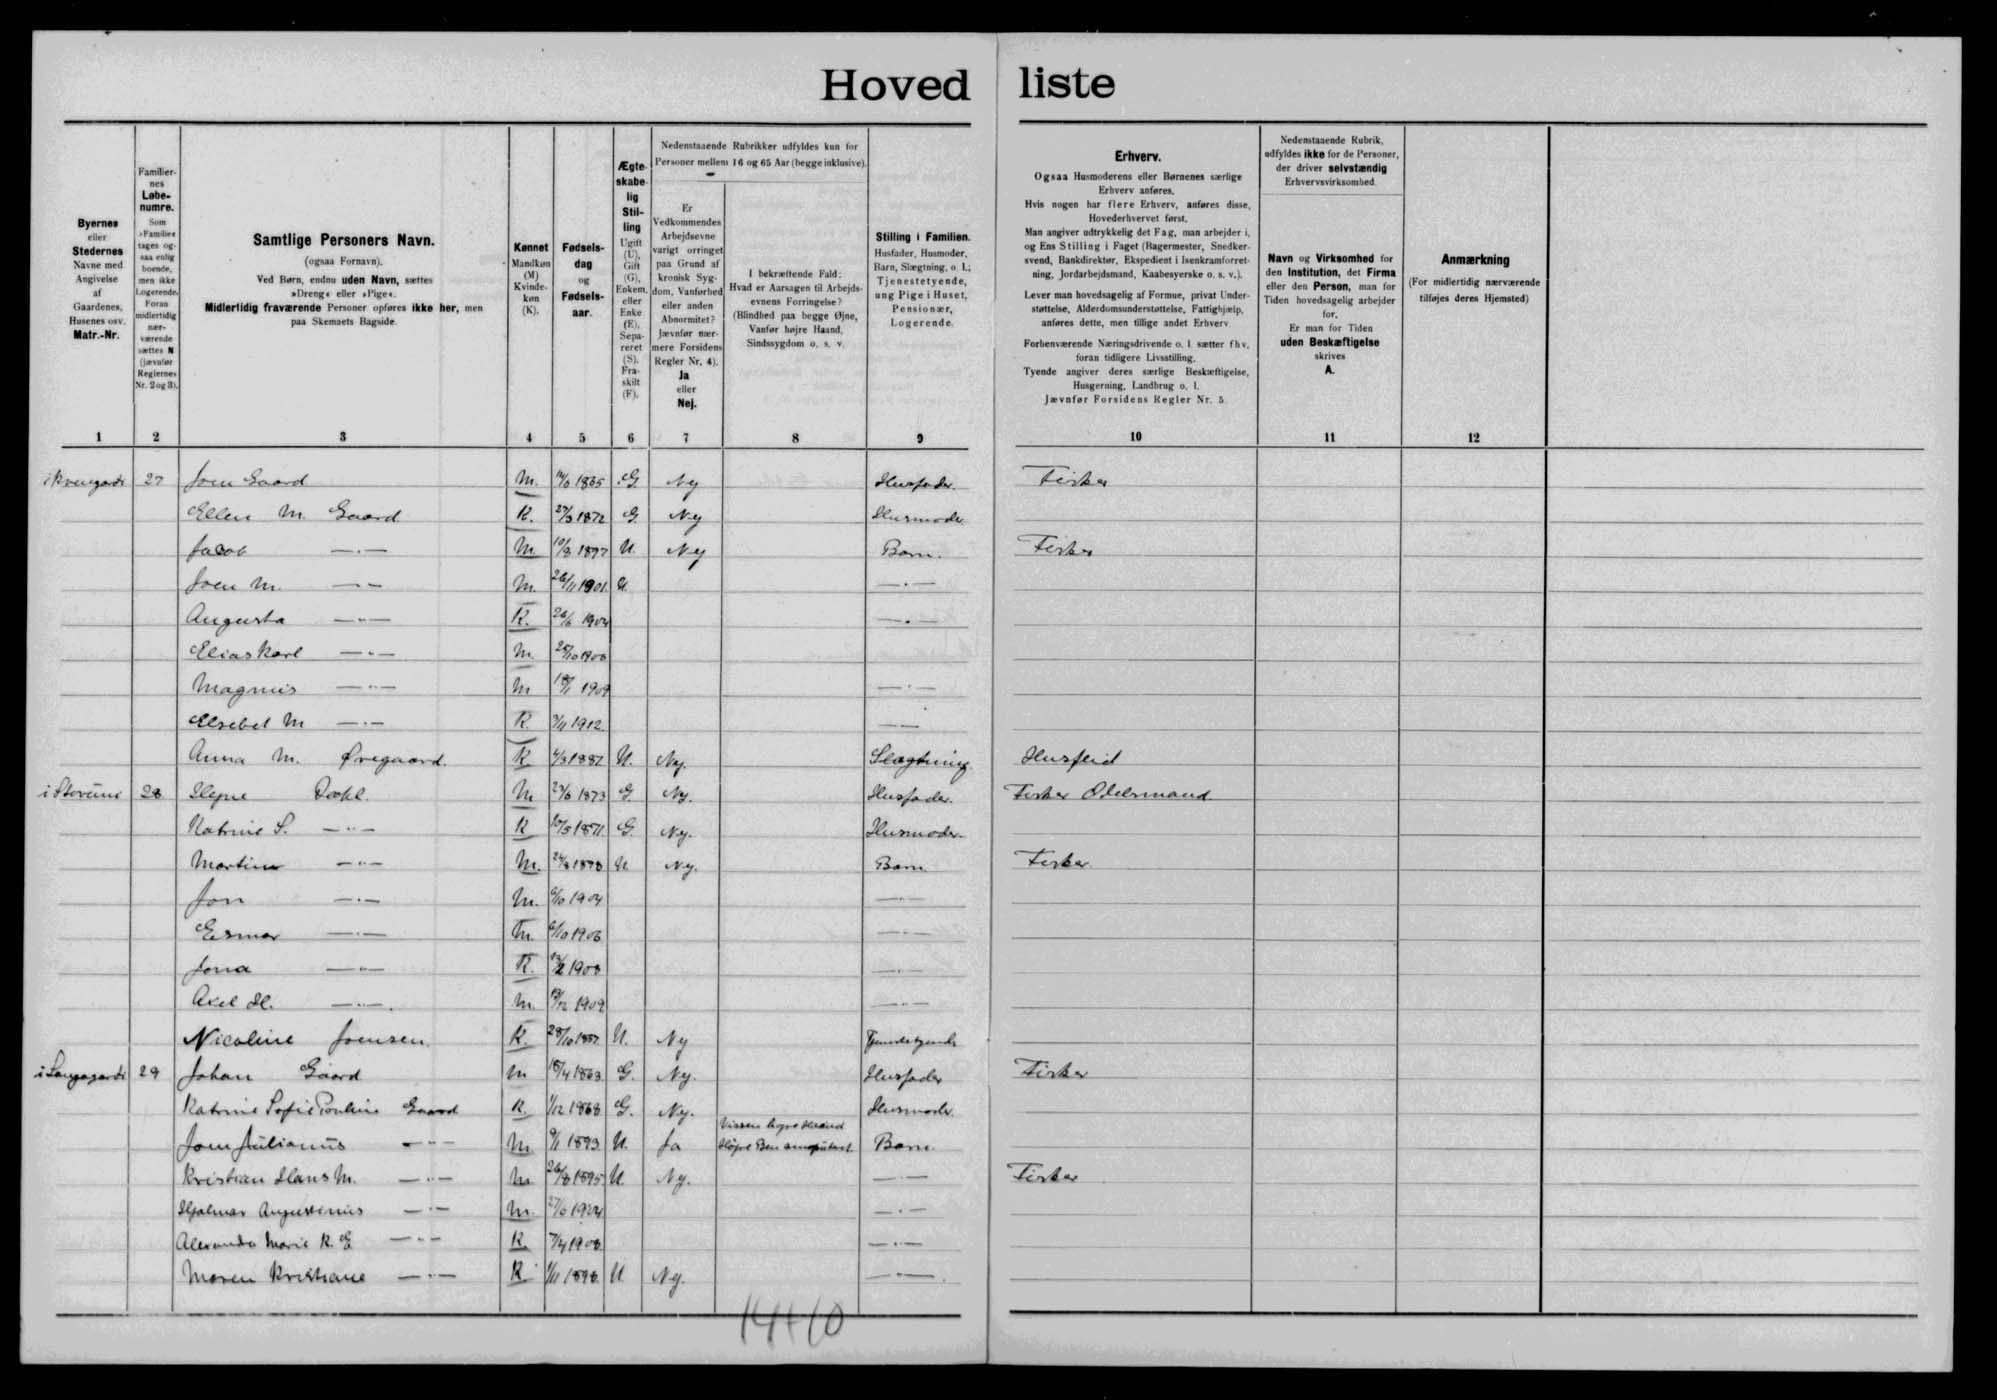 Hoved liste
Byernes
eller
Stedernes
Navne med
Angivelse
af
Gaardenes,
Husenes osv.
Matr.-Nr.
Familier-
nes
Løbe-
numre.
Som
»Familie«
tages og-
saa enlig
boende,
men ikke
Logerende.
Foran
midlertidig
nær-
værende
sættes N
(jævnfør
Reglernes
Nr. 2 og 3).
Samtlige Personers Navn.
(ogsaa Fornavn).
Ved Børn, endnu uden Navn, sættes
»Dreng« eller »Pige«.
Midlertidig fraværende Personer opføres ikke her, men
paa Skemaets Bagside.
Kønnet
Mandkøn
(M)
Kvinde-
køn
(K).
Fødsels-
dag
og
Fødsels-
aar.
Ægte-
skabe-
lig
Stil-
ling
Ugift
(U),
Gift
(G),
Enkem.
eller
Enke
(E),
Sepa-
reret
(S).
Fra-
skilt
(F).
Nedenstaaende Rubrikker udfyldes kun for
Personer mellem 16 og 65 Aar (begge inklusive).
Er
Vedkommendes
Arbejdsevne
varigt forringet
paa Grund af
kronisk Syg-
dom, Vanførhed
eller anden
Abnormitet?
Jævnfør nær-
mere Forsidens
Regler Nr. 4).
Ja
eller
Nej.
I bekræftende Fald:
Hvad er Aarsagen til Arbejds-
evnens Forringelse?
(Blindhed paa begge Øjne,
Vanfør højre Haand,
Sindssygdom o. s. v.
Stilling i Familien.
Husfader, Husmoder,
Barn, Slægtning, o. l.;
Tjenestetyende,
ung Pige i Huset,
Pensionær,
Logerende.
Erhverv.
Ogsaa Husmoderens eller Børnenes særlige
Erhverv anføres.
Hvis nogen har flere Erhverv, anføres disse,
Hovederhvervet først.
Man angiver udtrykkelig det Fag, man arbejder i,
og Ens Stilling i Faget (Bagermester, Snedker-
svend, Bankdirektør, Ekspedient i Isenkramforret-
ning, Jordarbejdsmand, Kaabesyerske o. s. v.).
Lever man hovedsagelig af Formue, privat Under-
støttelse, Alderdomsunderstøttelse, Fattighjælp,
anføres dette, men tillige andet Erhverv
Forhenværende Næringsdrivende o. l. sætter fhv.
foran tidligere Livsstilling.
Tyende angiver deres særlige Beskæftigelse,
Husgerning, Landbrug o. l.
Jævnfør Forsidens Regler Nr. 5.
Nedenstaaende Rubrik,
udfyldes ikke for de Personer,
der driver selvstændig
Erhvervsvirksomhed.
Navn og Virksomhed for
den Institution, det Firma
eller den Person, man for
Tiden hovedsagelig arbejder
for.
Er man for Tiden
uden Beskæftigelse
skrives
A.
Anmærkning
(For midlertidig nærværende
tilføjes deres Hjemsted)
1 2 3 4 5 6 7 8 9 10 11 12
27 Joen Gaard M. 1865 G. Nej Husfader. Fisker
Ellen M. Gaard K. 1872 G. Nej Husmoder
Jacob —"— M. 10/8 1897 U. Nej Barn. Fisker
Joen M. —"— M. 26/11 1901 U. —"—
Augusta —"— K. 1904 —"—
Elias Karl —"— M. 25/10 1906
Magnus —"— M 1909 —"—
Elsebet M —"— K. 1912. —"—
Anna M. Øregaard. K 1887 U. Nej. Slægtning. Husflid
28 Dahl. M 1873 G. Nej. Husfader. Fisker Odelsmand
Katrine S. —"— K 1871 G. Nej. Husmoder.
Martin —"— M. 1898 U. Nej. Barn. Fisker.
Jon —"— M. 1904 —"—
Esmar —"— M. 1906 —"—
Jona —"— K. 1908 —"—
Axel H. —"— M. 1909 —"—
Nicoline Joensen. K. 28/10 U. Nej Tjenestetyende
29 Johan Gaard M 18/4 1863 G. Nej. Husfader Fisker
Katrine Sofie Gaard K. 1/12 1868 G. Nej. Husmoder.
Joen Julianus —"— M. 1893 U. Ja Vissen Haand
Højre Ben amputert. Barn.
Kristian Hans M. —"— M 26/8 1895 U. Nej. —"— Fisker
Hjalmar Augustinus —"— M. —"—
Marie K. E. —"— K. 1908 —"—
Maren Kristiane —"— K 1/11 1898. U. Nej. —"—
14+10